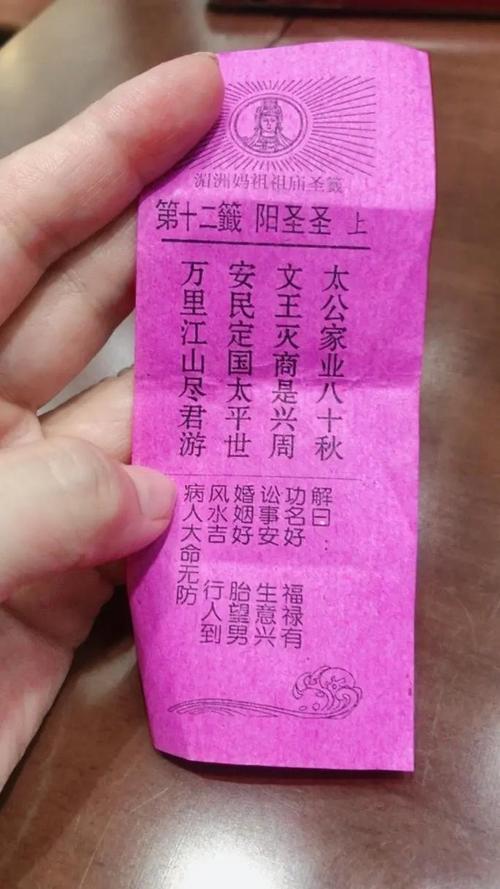 湄洲妈祖祖庙圣籤
第十二籤 阳圣圣 上
太公家业八十秋
文王灭商是兴周
安民定国太平世
万里江山尽君游
解曰
功名好 福禄有
讼事安 生意兴
婚姻好 胎望男
风水吉 行人到
病人大命无防